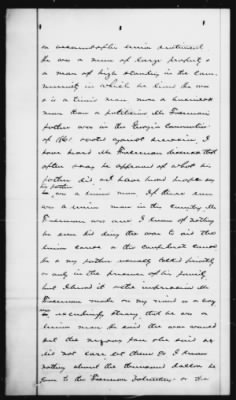 an
union sentiment
he was a man of large property &
a man of high standing in the com
munity in which he lived he was
a union man more a business
man than a politician Mr Freeman's
father was in the Georgia Convention
of 1861 voted against secession, I
have heard Mr Freeman
often say he approved of what his
father did, and have heard people say
his father
he was a union man, If there ever
was a union man in this county Mr
Freeman was one I know of nothing
he ever did during the war to aid the
union cause or the confederate cause
he & my father usually talked privately
or only in the presence of his family
but I know it is the impression Mr
Freeman made on my mind as a boy
was exceedingly strong that he was a
union man he said the war would
put the negroes free she said she
did not care let them go I know
nothing about the thousand dollars he
gave to the Freeman Volunteers or the